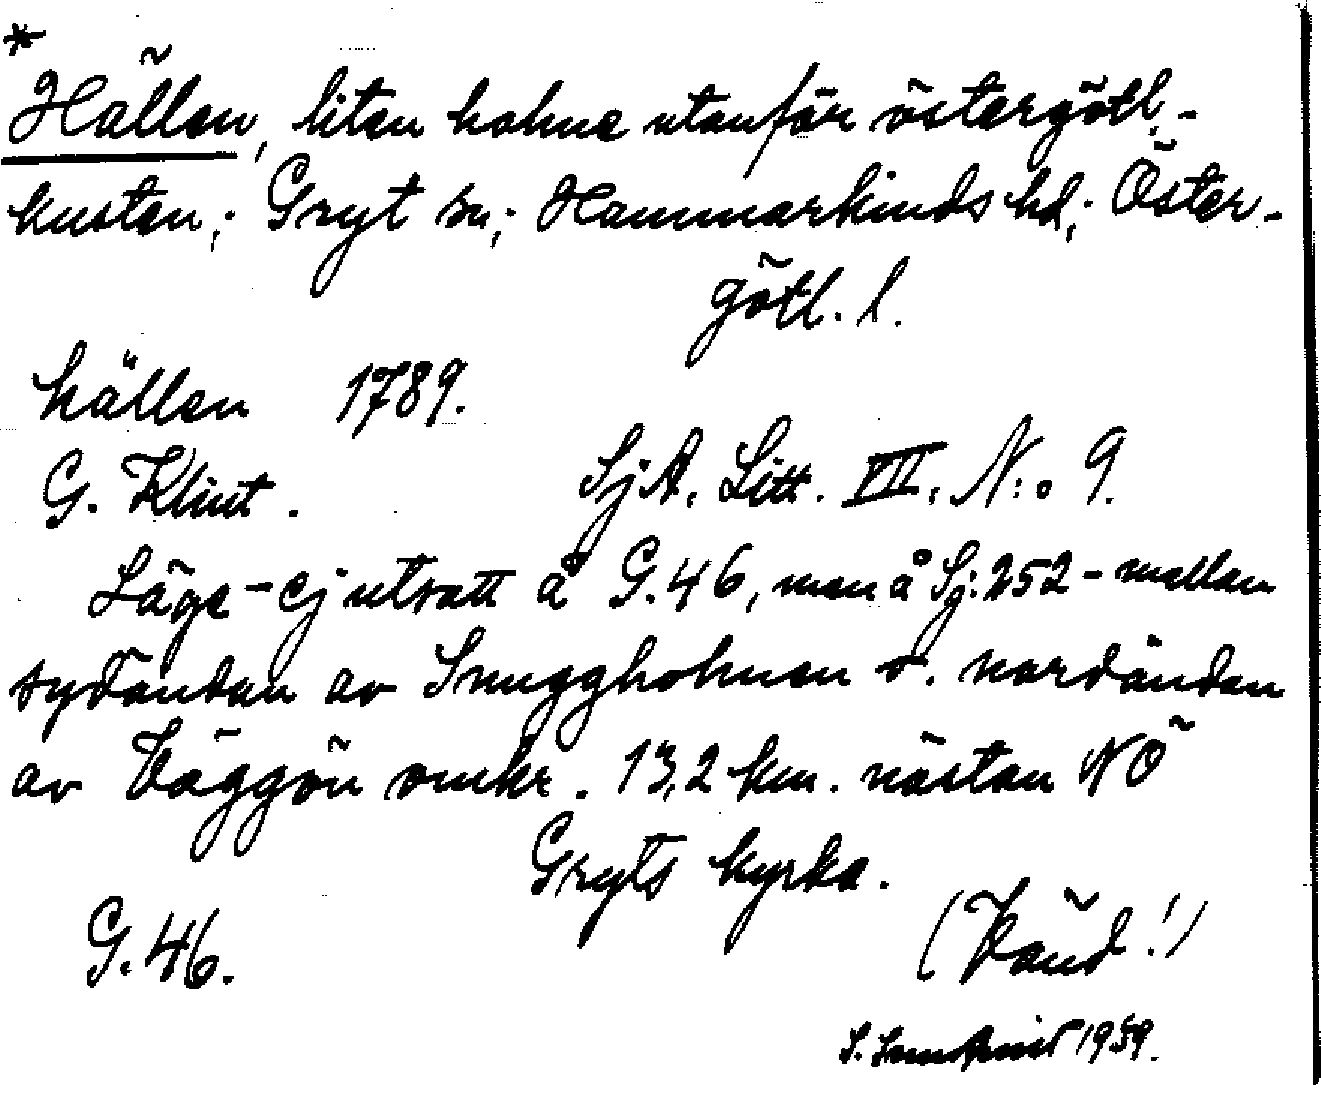 *
Hällen, liten holme utanför östergötl.-
kusten; Gryt sn; Hammarkinds hd; Öster-
götl. l.
hällen 1789.
G. Klint. SjA. Litt. VII. N:o 9.
Läge - ej utsatt å G.46, men å Sj:252 - mellan
sydändan av Snuggholmen o. nordändan
av Väggön omkr. 13,2 km. nästan NÖ
Gryts kyrka.
G.46. (Vänd!)
S. 1959.